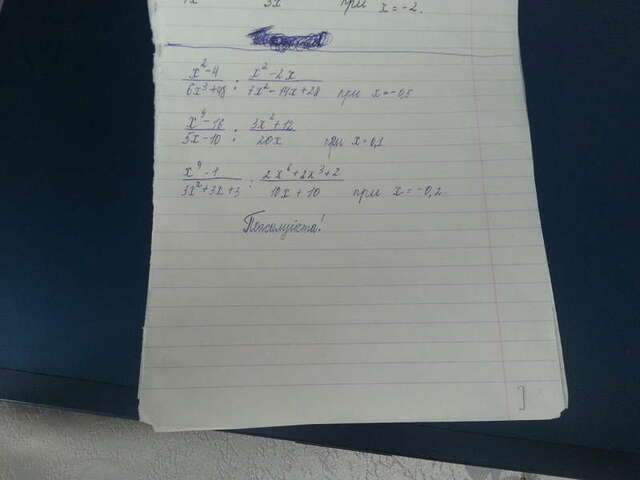 3x при x = -2.
x² - 4 / 6x³ + 48 : x² - 2x / 7x² - 14x + 28 при x = -0,5
x⁴ - 16 / 5x - 10 : 3x² + 12 / 20x при x = 0,1
x⁴ - 1 / 3x² + 3x + 3 : 2x⁴ + 2x³ + 2 / 10x + 10 при x = -0,2.